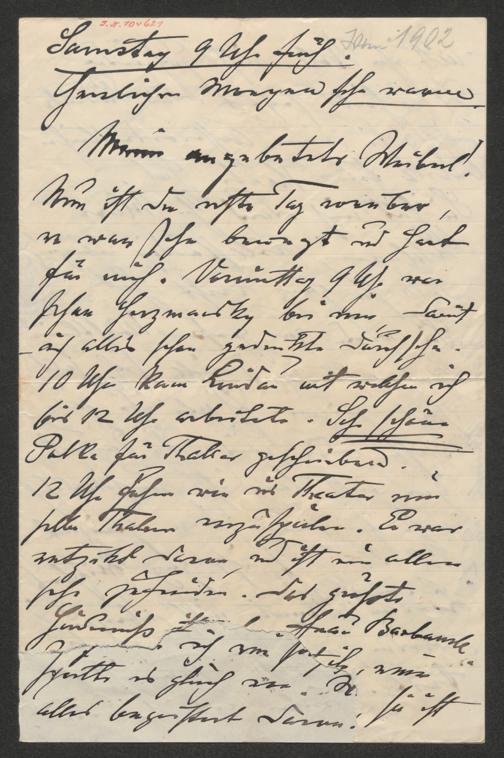 I.N. 104621
1902
Samstag 9 Uhr früh.
Herrlicher Morgen sehr warm.
Mein angebetetes Weiberl!
Nun ist der erste Tag vorüber,
er war sehr bewegt und hart
für mich. Vormittag 9 Uhr war
schon Herzmansky bei mir damit
ich alles schon gedruckte durchsehe.
10 Uhr kam Lindau mit welchem ich
bis 12 Uhr arbeitete. Sehr schöne
Polka für Thaller geschrieben.
12 Uhr fuhren wir ins Theater um
selbe Thallern vorzuspielen. Er war
entzückt davon, und ist mit allem
sehr zufrieden. Das größte
Hinderniss
ich
spielte es gleich
alles begeistert davon!